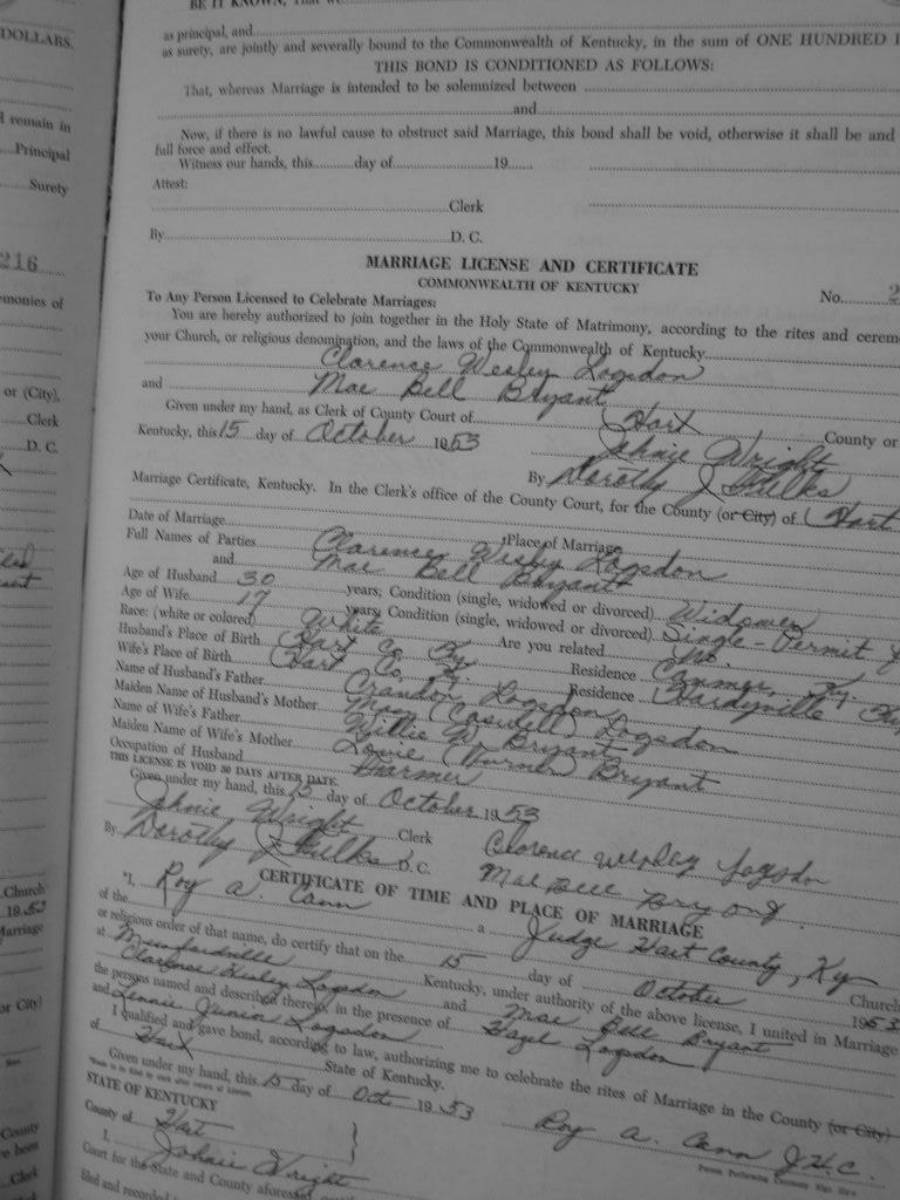 DOLLARS.
remain in
Principal
Surety
216
monies of
or (City),
Clerk
D. C.
Church
1953
Marriage
or City)
County
Clerk
BE IT KNOWN, That we
as principal, and
as surety, are jointly and severally bound to the Commonwealth of Kentucky, in the sum of ONE HUNDRED
THIS BOND IS CONDITIONED AS FOLLOWS:
That, whereas Marriage is intended to be solemnized between
and
Now, if there is no lawful cause to obstruct said Marriage, this bond shall be void, otherwise it shall be and
full force and effect.
Witness our hands, this day of 19
Attest:
Clerk
By D. C.
MARRIAGE LICENSE AND CERTIFICATE
COMMONWEALTH OF KENTUCKY
No. 2
To Any Person Licensed to Celebrate Marriages:
You are hereby authorized to join together in the Holy State of Matrimony, according to the rites and cerem
your Church, or religious denomination, and the laws of the Commonwealth of Kentucky
Clarence Wesley Logsdon
and Mae Bell Bryant
Given under my hand, as Clerk of County Court of Hart County or
Kentucky, this 15 day of October 1953 Johnie Wright
By Dorothy J Fulks
Marriage Certificate, Kentucky. In the Clerk's office of the County Court, for the County (or City) of Hart
Date of Marriage Place of Marriage
Full Names of Parties Clarence Wesley Logsdon
and Mae Bell Bryant
Age of Husband 30 years; Condition (single, widowed or divorced) Widower
Age of Wife 17 years; Condition (single, widowed or divorced) Single - Permit
Race: (white or colored) White Are you related No.
Husband's Place of Birth Hart Co. Ky. Residence Cammer, Ky.
Wife's Place of Birth Hart Co. Ky. Residence Hardyville, Ky
Name of Husband's Father Crandon Logsdon
Maiden Name of Husband's Mother Mary (Caswell) Logsdon
Name of Wife's Father Willie W. Bryant
Maiden Name of Wife's Mother Louie (Turner) Bryant
Occupation of Husband Farmer
THIS LICENSE IS VOID 30 DAYS AFTER DATE.
Given under my hand, this 15 day of October 1953
Johnie Wright Clerk Clarence Wesley Logsdon
By Dorothy J Fulks D. C. Mae Bell Bryant
CERTIFICATE OF TIME AND PLACE OF MARRIAGE
"I, Roy A. Cann a Judge Hart County, Ky
of the Church
or religious order of that name, do certify that on the 15 day of October 1953
at Munfordville Kentucky, under authority of the above license, I united in Marriage
Clarence Wesley Logsdon and Mae Bell Bryant
the persons named and described therein, in the presence of Hazel Logsdon
and Lennie Junior Logsdon
I qualified and gave bond, according to law, authorizing me to celebrate the rites of Marriage in the County (or City)
of Hart State of Kentucky.
Given under my hand, this 15 day of Oct. 1953
Roy A. Cann J.H.C.
STATE OF KENTUCKY
County of Hart
I, Johnie Wright
Court for the State and County aforesaid
filed and recorded